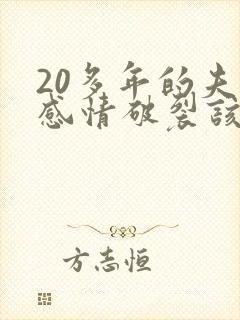 20多年的夫
感情破裂该
方志恒